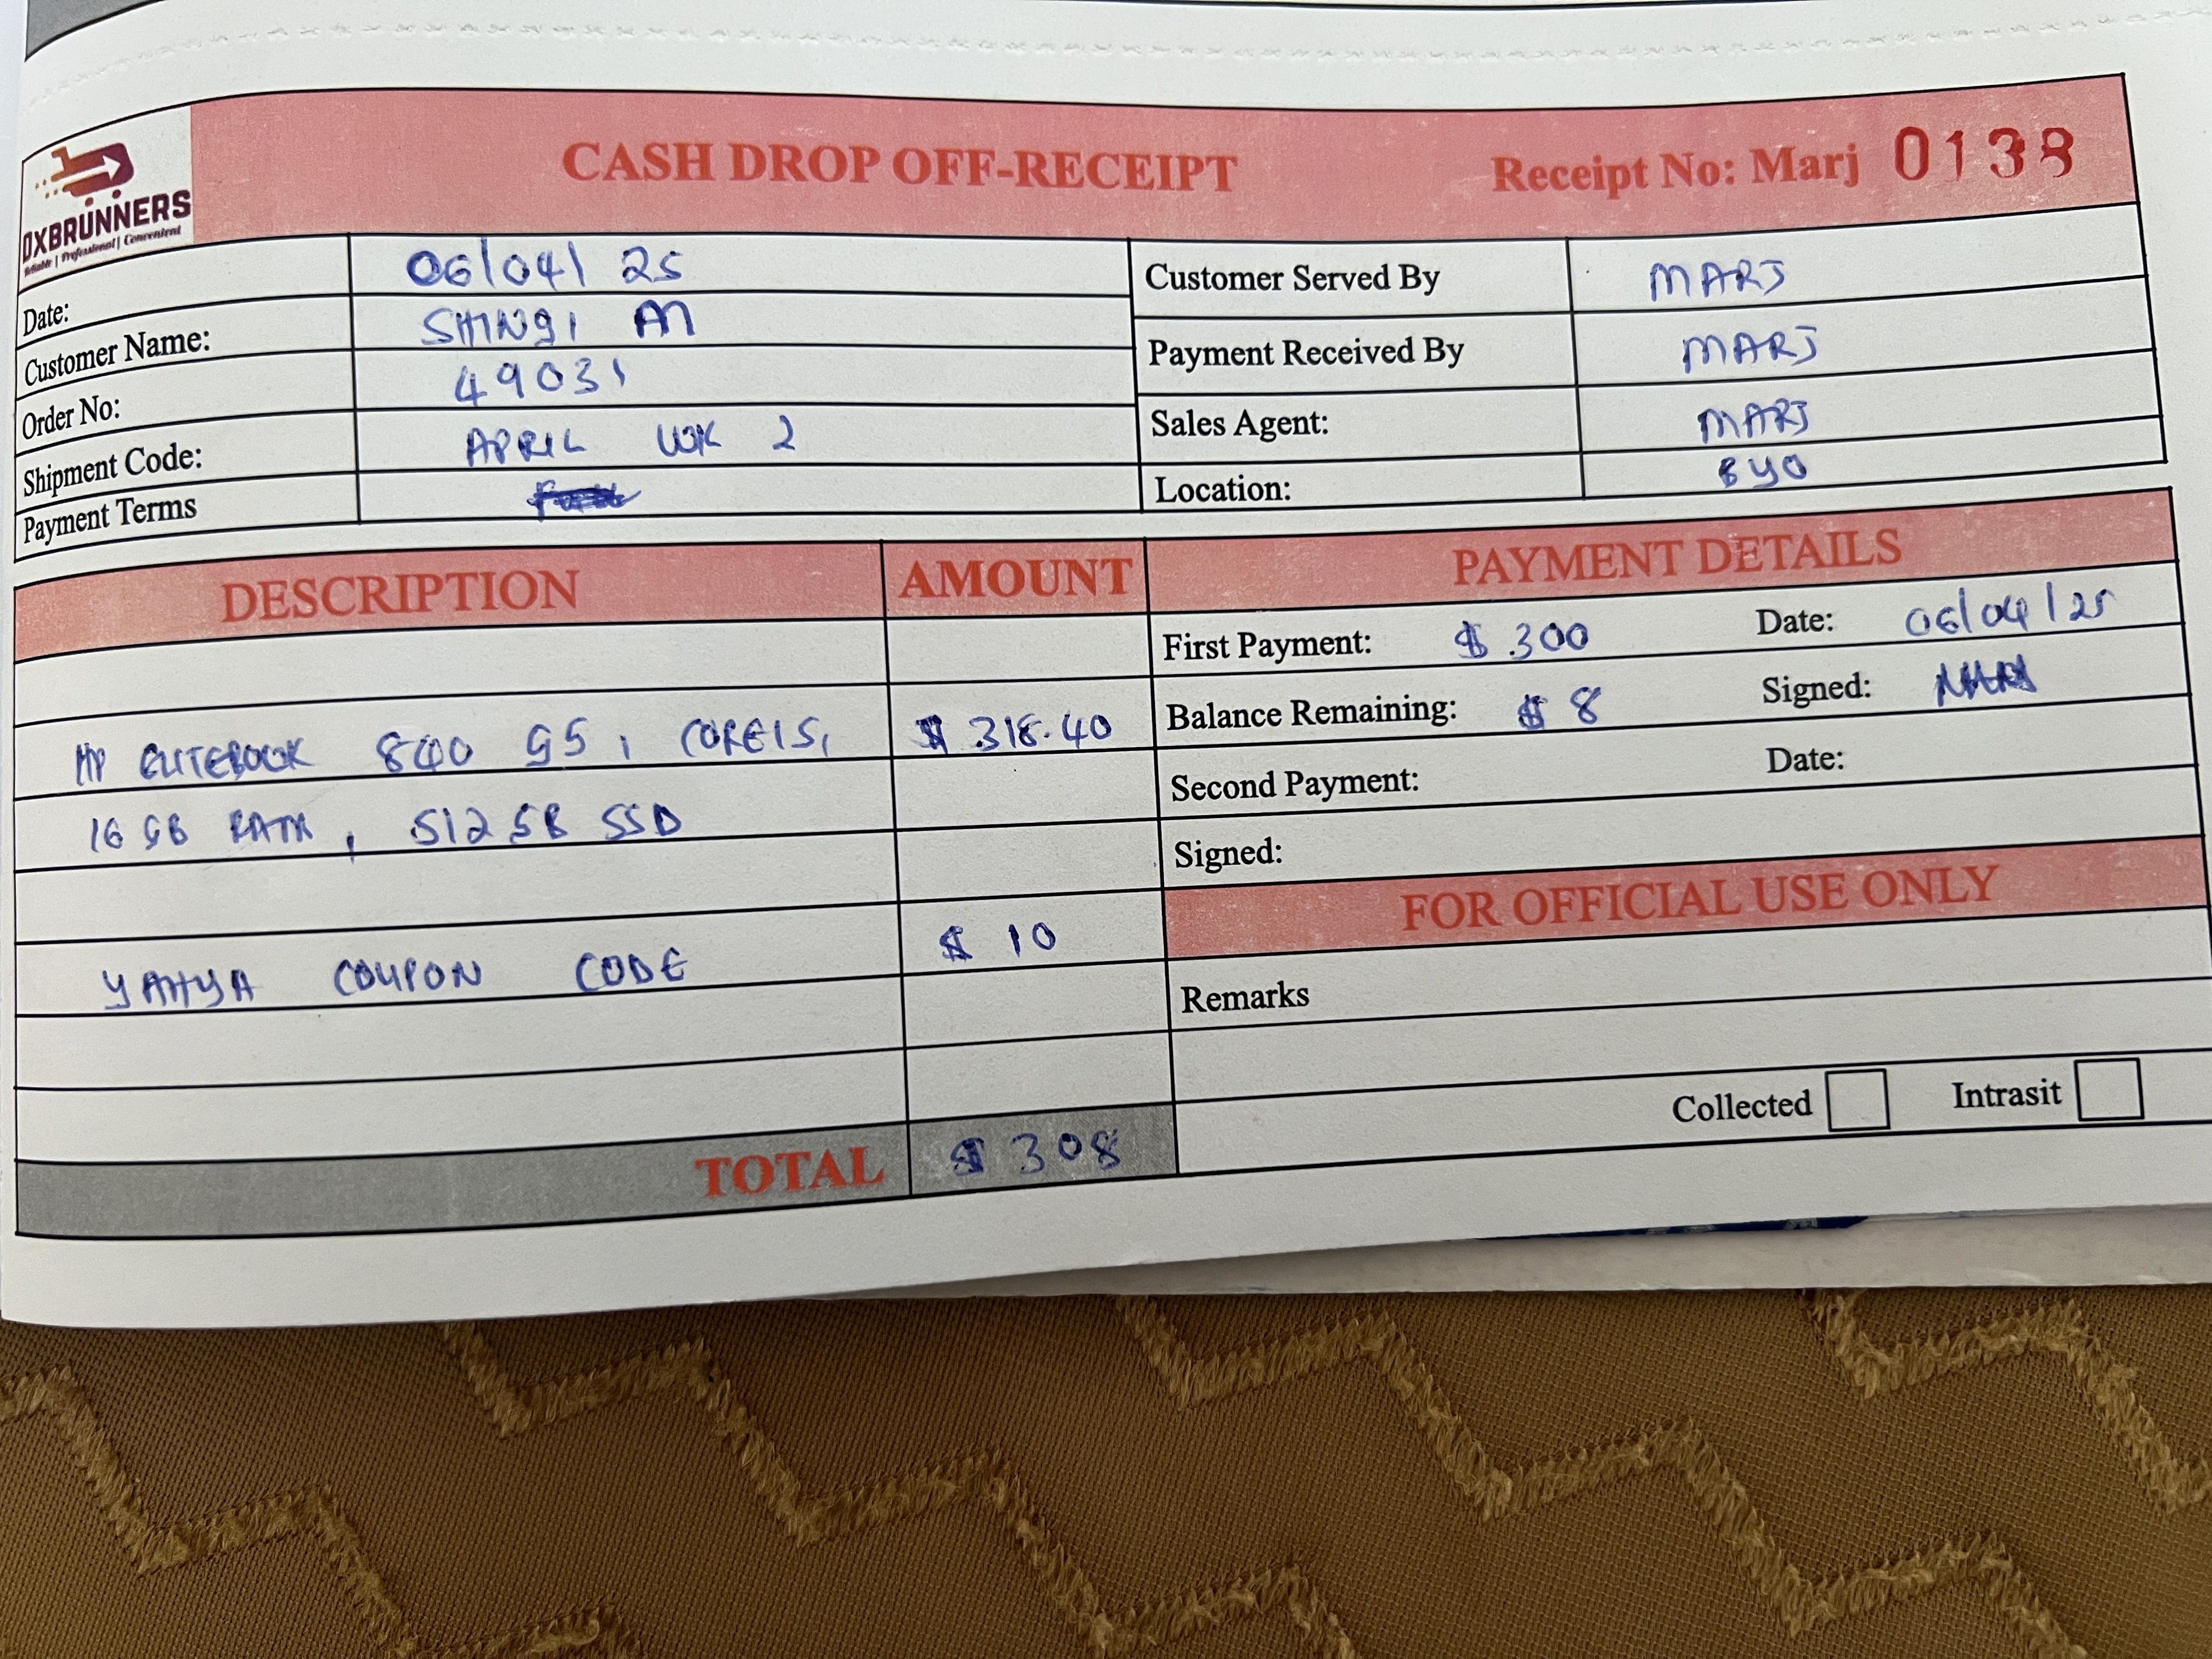 OXBRUNNERS
Reliable | Professional | Convenient
CASH DROP OFF-RECEIPT
Receipt No: Marj 0138
Date: 06/04/25
Customer Name: SHINGI M
Order No: 49031
Shipment Code: APRIL WK 2
Payment Terms
Customer Served By MARJ
Payment Received By MARJ
Sales Agent: MARJ
Location: BYO
DESCRIPTION AMOUNT
HP ELITEBOOK 840 G5, COREI5, $ 318.40
16 GB RAM, 512 GB SSD
YAHYA COUPON CODE $ 10
TOTAL $ 308
PAYMENT DETAILS
First Payment: $ 300 Date: 06/04/25
Balance Remaining: $ 8 Signed:
Second Payment: Date:
Signed:
FOR OFFICIAL USE ONLY
Remarks
Collected Intrasit